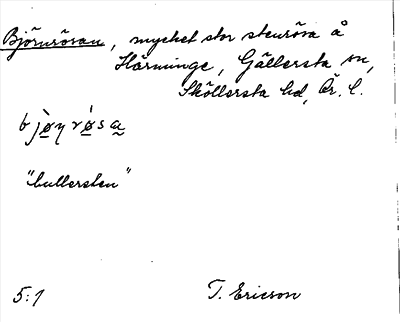 Björnrösan, mycket stor stenrösa å
Härminge, Gällersta sn,
Sköllersta hd, Ör. l.
"bullersten"
5:1
T. Ericson